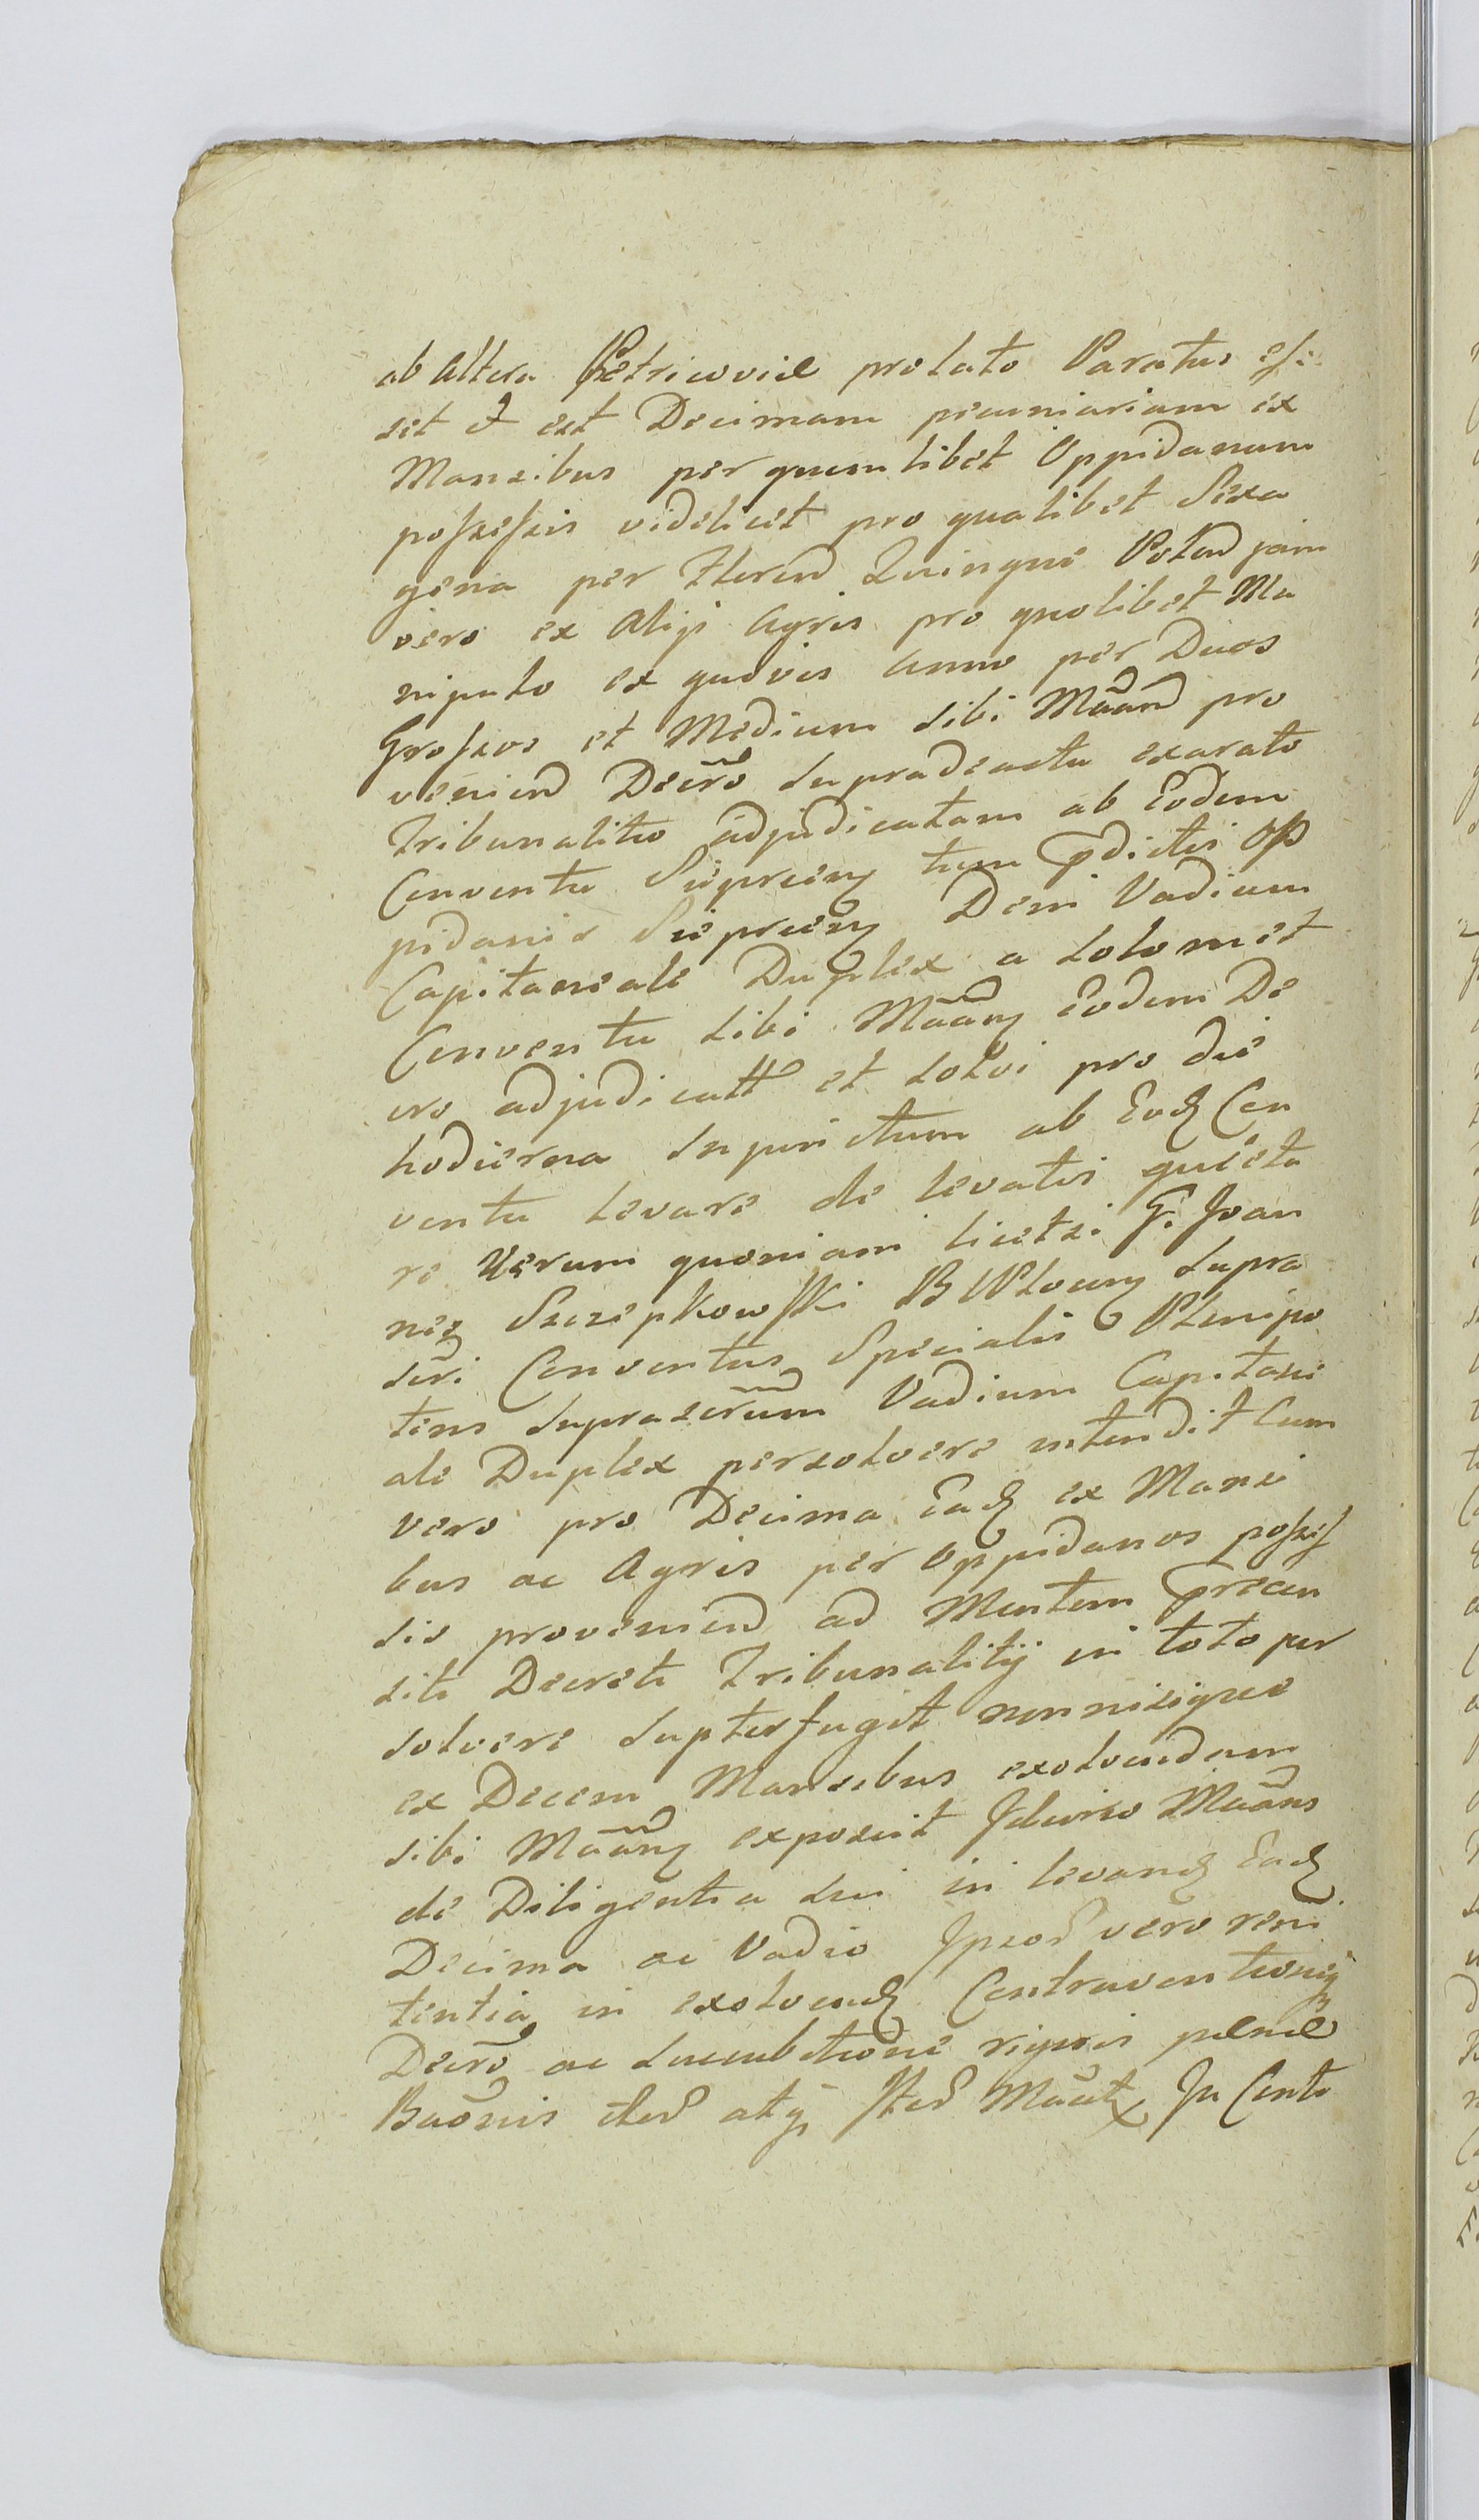 ab altera Petricoviæ prolato Paratus es:
set et est Decimam pecuniariam ex
Mansibus per quemlibet Oppidanum
possessis videlicet pro qualibet Sexa
gena per Floren Quinque Polon jam
vero ex alijs Agris pro quolibet Ma
nipulo ex quovis anno per Duos
Grossos et Medium sibi Maand pro
veniend Decro supradeactu exarato
Tribunalitio adjudicatam ab Eodem
Conventu Sieprceny tum pdictis Op
pidanis Sieprceny Demi Vadium
Capitaneale Duplex a solomet
Conventu sibi Maany Eodem De
cro adjudicatt et solvi pro die
hodierna injunctum ab Eod Con
ventu levare de levatis quieta
re Verum quoniam licetsi G. Joan
nes Szczepkowski B Plocen supra
scri Conventus Specialis Plenipo
tens suprascrum Vadium Capitane
ale Duplex persolvere intendit Cum
vero pro Decima Ead ex Mansi
bus ac Agris per Oppidanos posses
sis proveniend ad Mentem præcen
siti Decreti Tribunalitij in toto per
solvere supterfugit nonnisi que
ex Decem Mansibus exolvendam
sibi Maany exposuit Idcirco Maans
de Diligentia sui in levand Ead
Decima ac Vadio Ipsos vero reni
tentia in exolvend Contraventionis
Decro ac succubitione rigoris pænæ
Baonis etc atq Sted Maatx In Conto